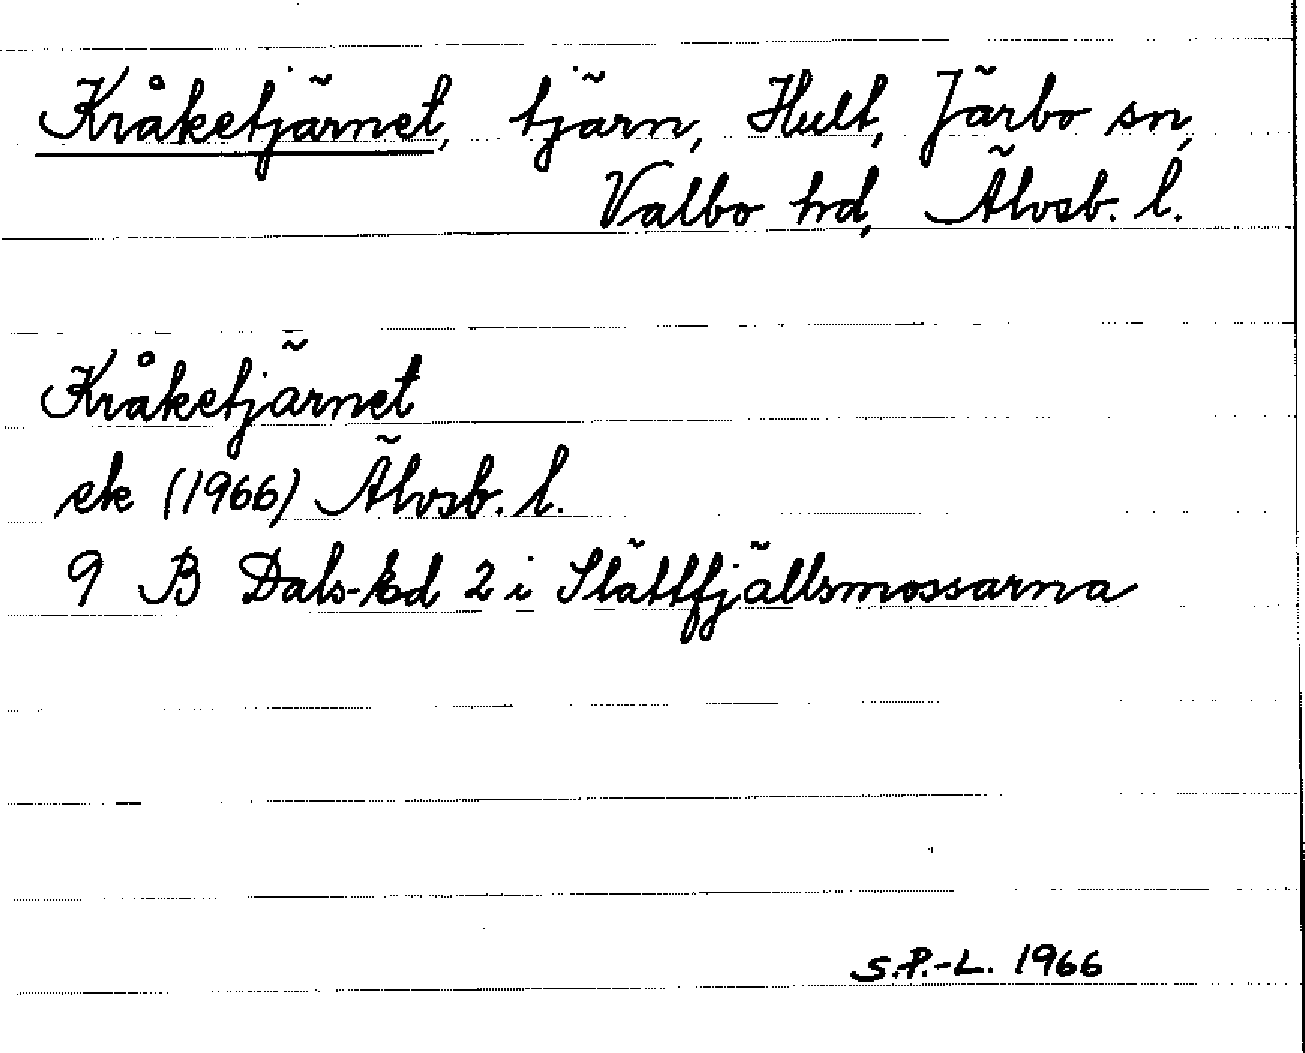 Kråketjärnet, tjärn, Hult, Järbo sn,
Valbo hd, Älvsb. l.
Kråketjärnet
ek (1966) Älvsb. l.
9 B Dals-Ed 2 i Slättfjällsmossarna
S.P.-L. 1966